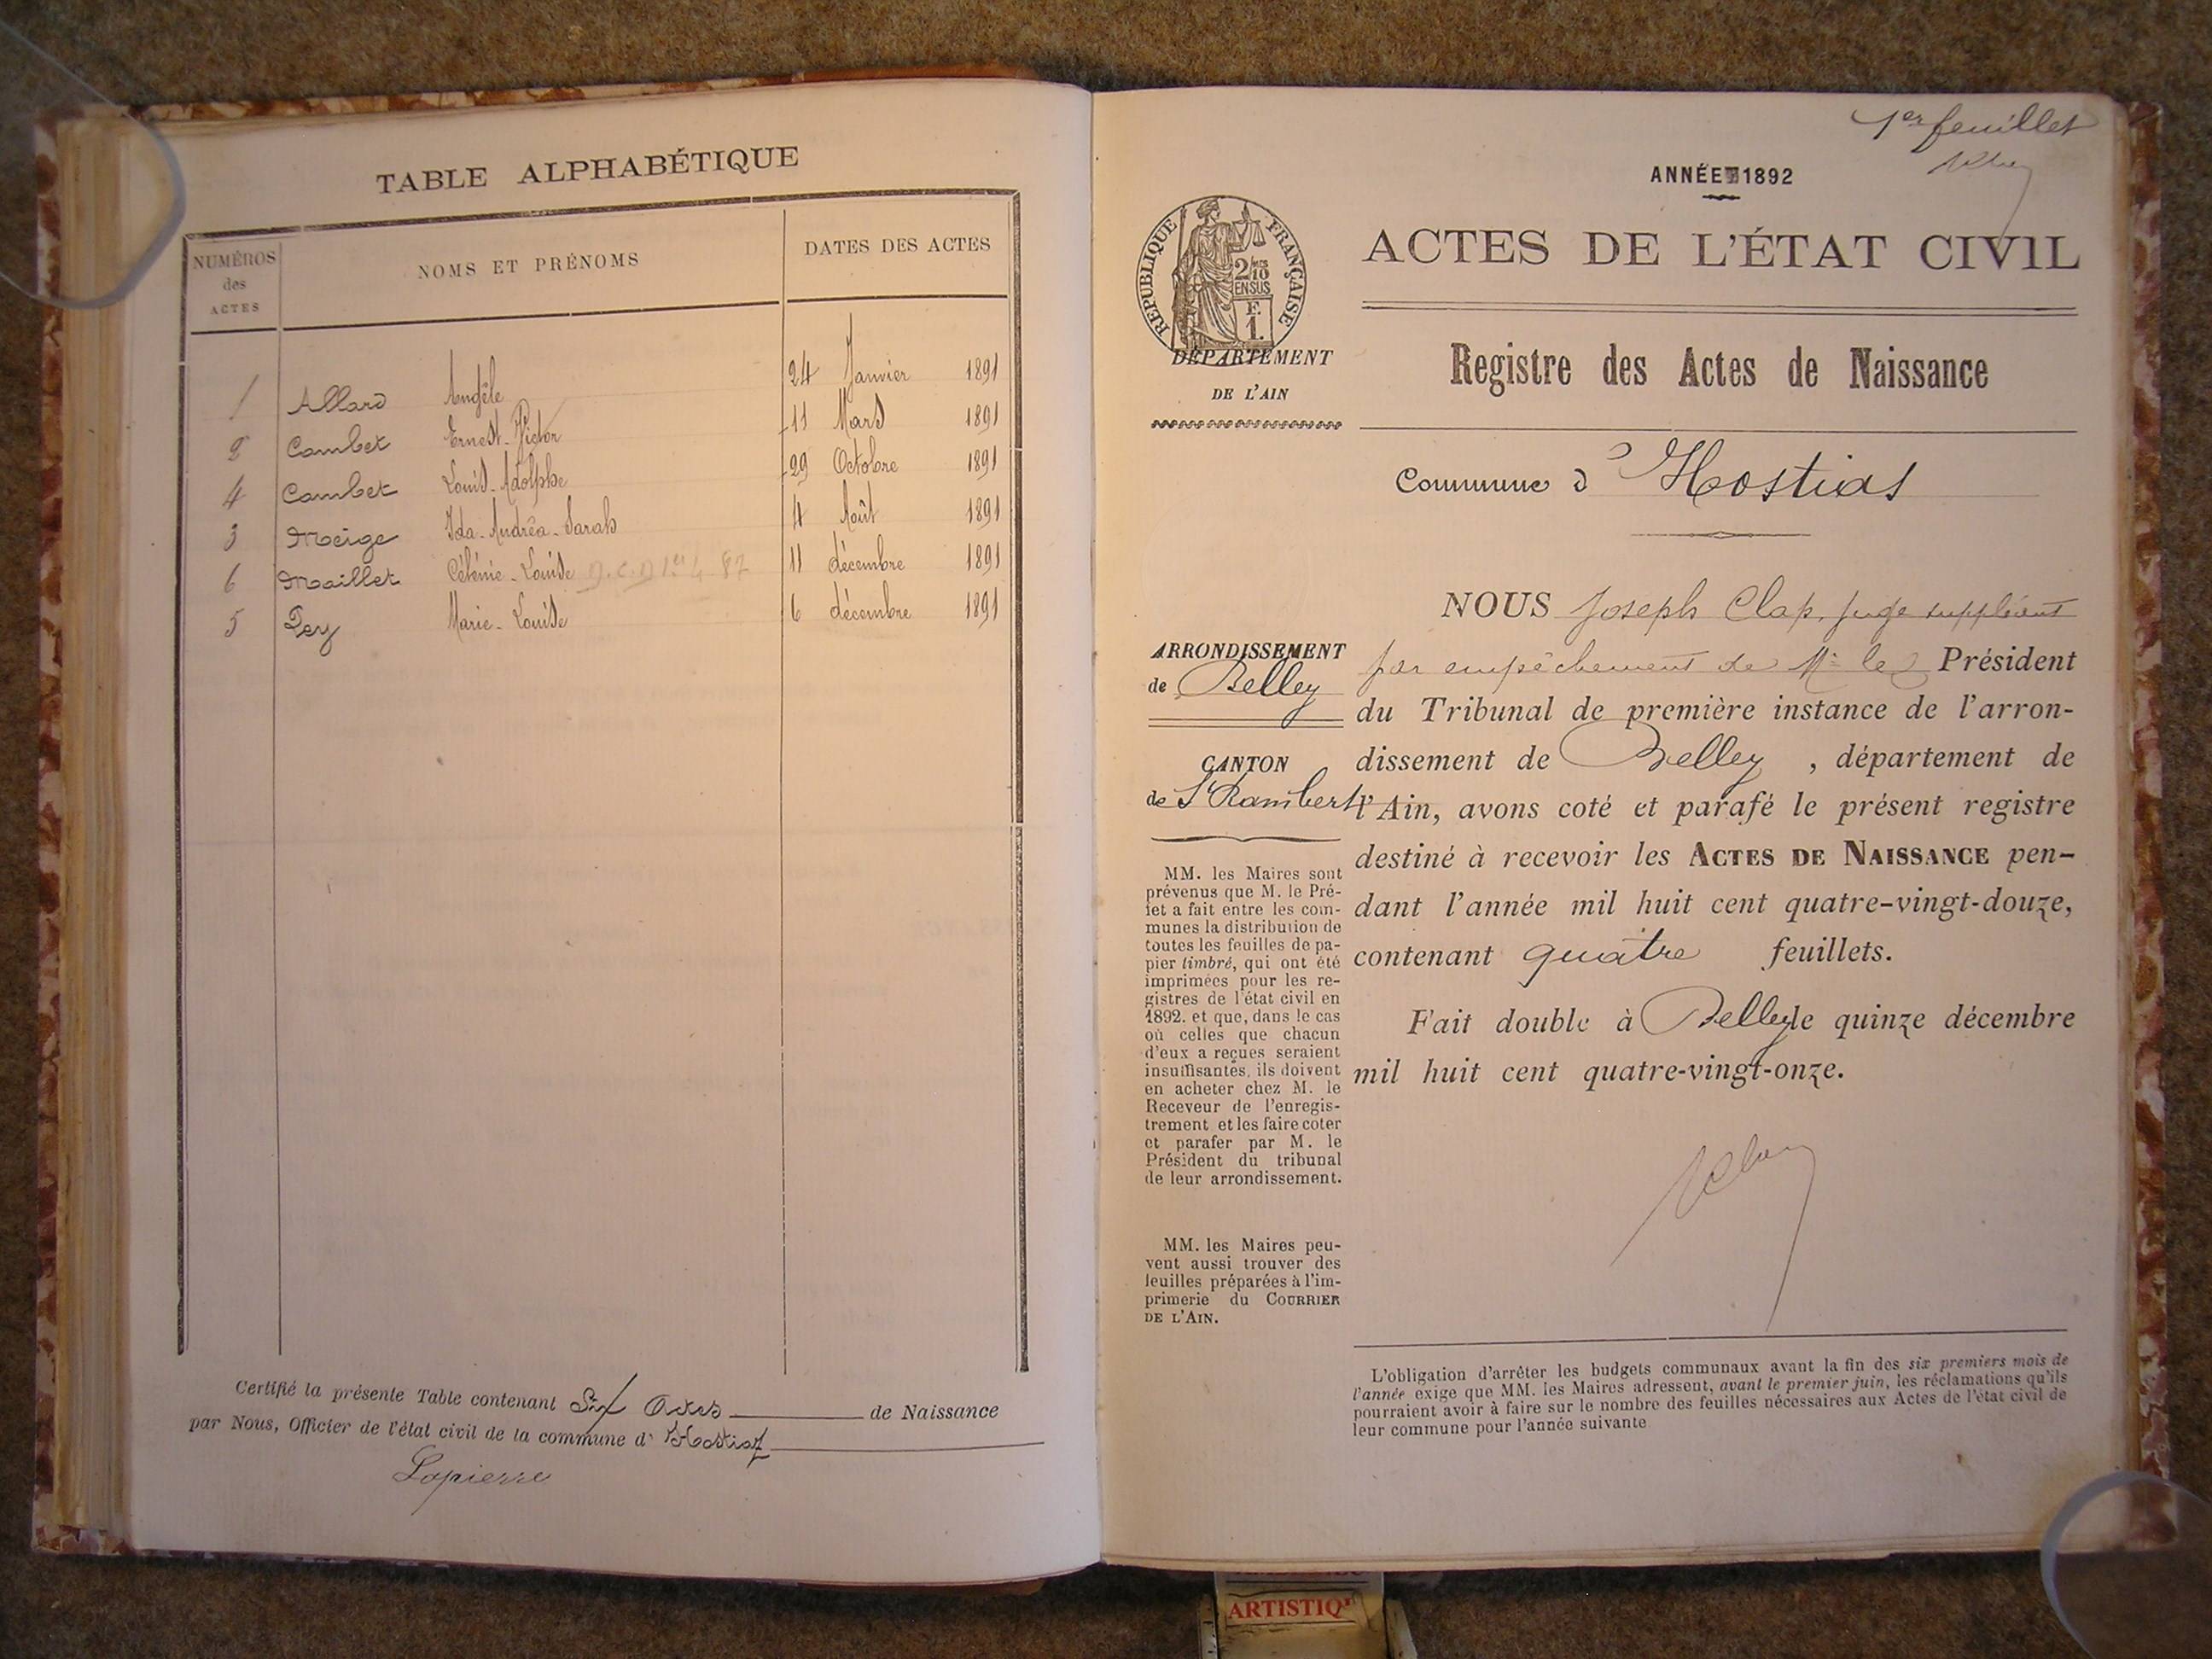 TABLE ALPHABÉTIQUE
NUMÉROS des ACTES
NOMS ET PRÉNOMS
DATES DES ACTES
1 Allard Angèle 24 Janvier 1891
2 Cambet Ernest-Victor 11 Mars 1891
4 Cambet Louis-Adolphe 29 Octobre 1891
3 Meige Ida-Andréa-Sarah 4 Août 1891
6 Maillet Célénie-Louise 11 décembre 1891
5 Pey Marie-Louise 6 décembre 1891
Certifié la présente Table contenant Six Actes de Naissance
par Nous, Officier de l'état civil de la commune d' Hostiaz
Lapierre
1er feuillet
ANNÉE 1892
RÉPUBLIQUE FRANÇAISE
2/10 EN SUS
F. 1.
DÉPARTEMENT
DE L'AIN
ACTES DE L'ÉTAT CIVIL
Registre des Actes de Naissance
Commune d'Hostias
ARRONDISSEMENT
de Belley
CANTON
de St Rambert
MM. les Maires sont
prévenus que M. le Pré-
fet a fait entre les com-
munes la distribution de
toutes les feuilles de pa-
pier timbré, qui ont été
imprimées pour les re-
gistres de l'état civil en
1892. et que, dans le cas
où celles que chacun
d'eux a reçues seraient
insuffisantes, ils doivent
en acheter chez M. le
Receveur de l'enregis-
trement et les faire coter
et parafer par M. le
Président du tribunal
de leur arrondissement.
MM. les Maires peu-
vent aussi trouver des
feuilles préparées à l'im-
primerie du COURRIER
DE L'AIN.
NOUS Joseph Clap, Juge suppléant
par empêchement de Mr le Président
du Tribunal de première instance de l'arron-
dissement de Belley, département de
l'Ain, avons coté et parafé le présent registre
destiné à recevoir les ACTES DE NAISSANCE pen-
dant l'année mil huit cent quatre-vingt-douze,
contenant quatre feuillets.
Fait double à Belley le quinze décembre
mil huit cent quatre-vingt-onze.
L'obligation d'arrêter les budgets communaux avant la fin des six premiers mois de
l'année exige que MM. les Maires adressent, avant le premier juin, les réclamations qu'ils
pourraient avoir à faire sur le nombre des feuilles nécessaires aux Actes de l'état civil de
leur commune pour l'année suivante
ARTISTIQ